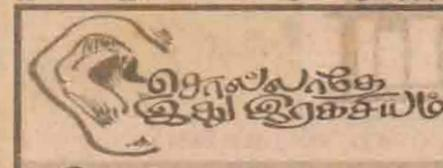 சொல்லாதே
இது இரகசியம்